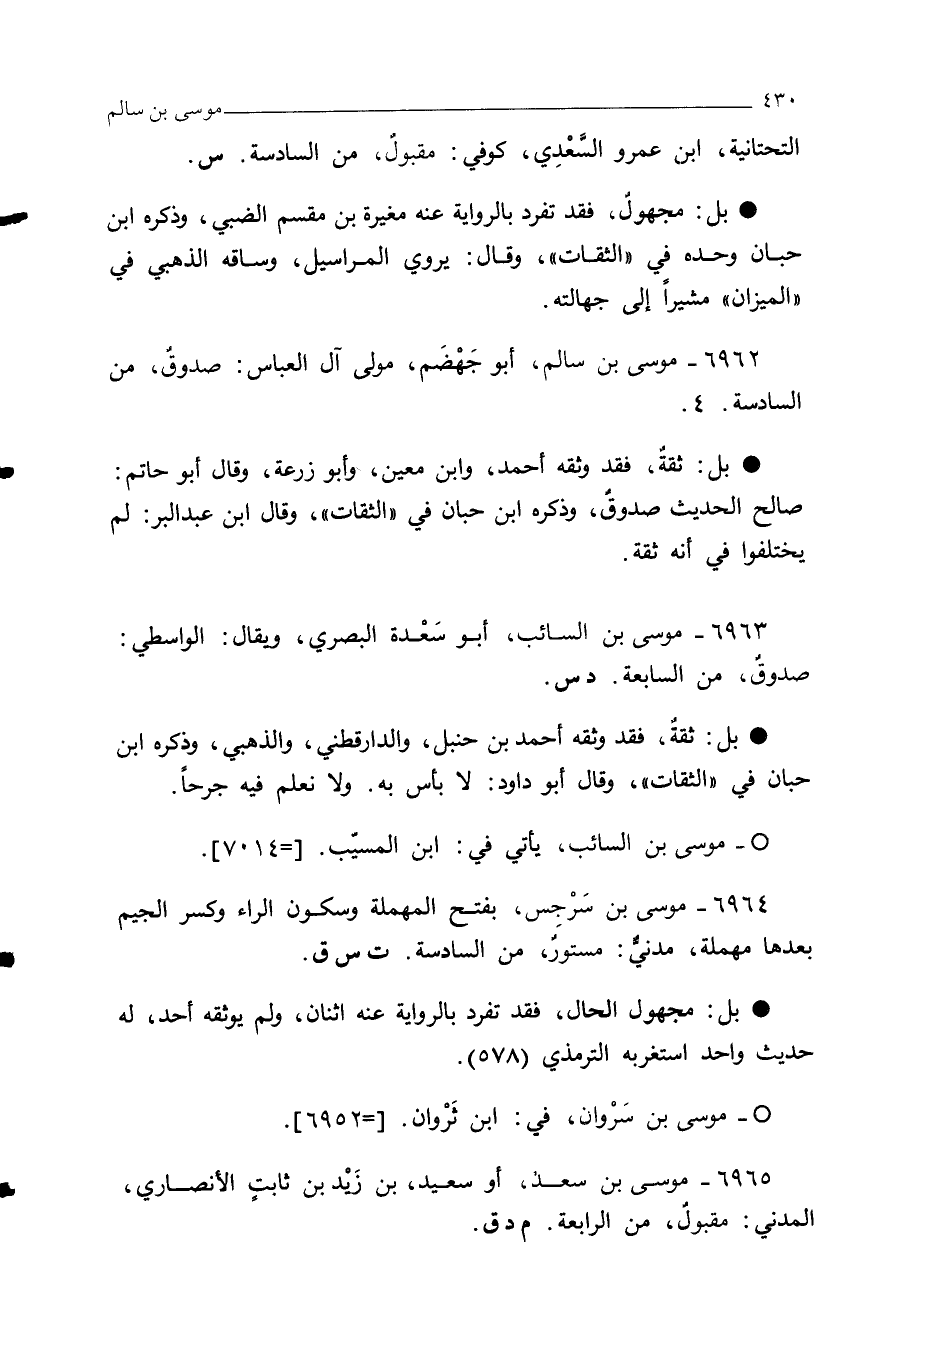 ٤٣٠ موسى بن سالم
التحتانية، ابن عمرو السَّعْدِي، كوفي: مقبولٌ، من السادسة. س.
● بل: مجهولٌ، فقد تفرد بالرواية عنه مغيرة بن مقسم الضبي، وذكره ابن
حبان وحده في «الثقات»، وقال: يروي المراسيل، وساقه الذهبي في
«الميزان» مشيراً إلى جهالته.
٦٩٦٢ - موسى بن سالم، أبو جَهْضَم، مولى آل العباس: صدوقٌ، من
السادسة. ٤.
● بل: ثقةٌ، فقد وثقه أحمد، وابن معين، وأبو زرعة، وقال أبو حاتم:
صالح الحديث صدوقٌ، وذكره ابن حبان في «الثقات»، وقال ابن عبدالبر: لم
يختلفوا في أنه ثقة.
٦٩٦٣ - موسى بن السائب، أبو سَعْدة البصري، ويقال: الواسطي:
صدوقٌ، من السابعة. د س.
● بل: ثقةٌ، فقد وثقه أحمد بن حنبل، والدارقطني، والذهبي، وذكره ابن
حبان في «الثقات»، وقال أبو داود: لا بأس به. ولا نعلم فيه جرحاً.
○ - موسى بن السائب، يأتي في: ابن المسيّب. [=٧٠١٤].
٦٩٦٤ - موسى بن سَرْجِس، بفتح المهملة وسكون الراء وكسر الجيم
بعدها مهملة، مدنيٌّ: مستورٌ، من السادسة. ت س ق.
● بل: مجهول الحال، فقد تفرد بالرواية عنه اثنان، ولم يوثقه أحد، له
حديث واحد استغربه الترمذي (٥٧٨).
○ - موسى بن سَرْوان، في: ابن ثَرْوان. [=٦٩٥٢].
٦٩٦٥ - موسى بن سعد، أو سعيد، بن زَيْد بن ثابتٍ الأنصاري،
المدني: مقبولٌ، من الرابعة. م د ق.